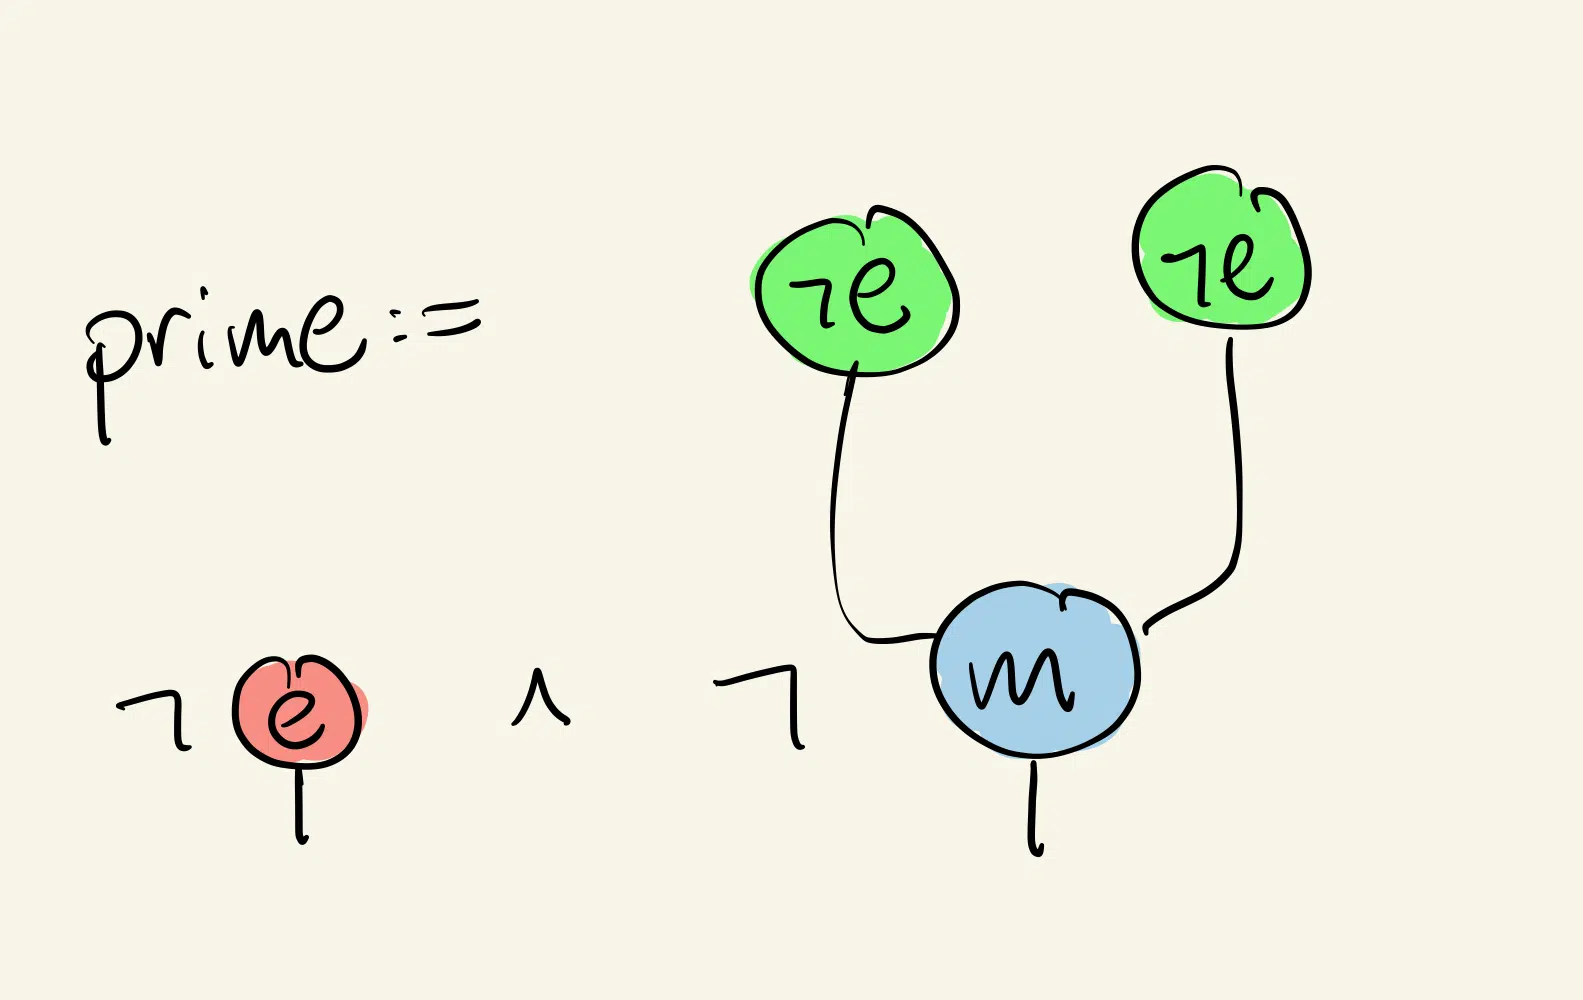 prime :=
¬e ¬e
¬ e ∧ ¬ m